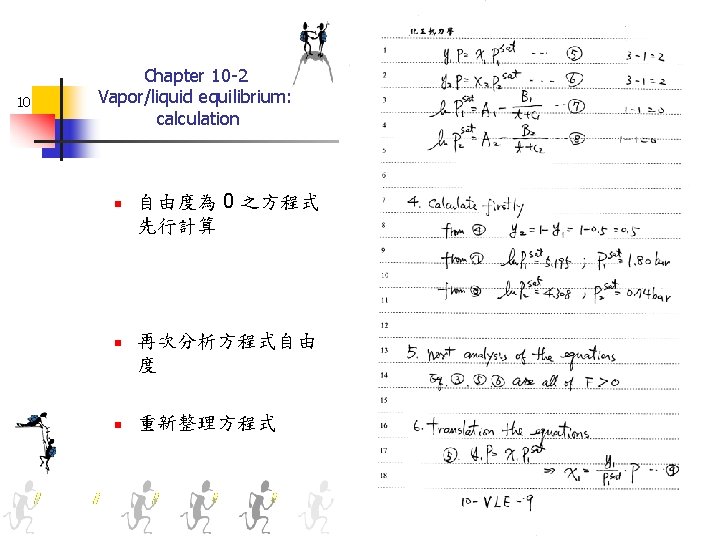 10
Chapter 10-2
Vapor/liquid equilibrium:
calculation
自由度為 0 之方程式
先行計算
再次分析方程式自由
度
重新整理方程式
化工熱力學
1 y₁P = x₁P₁ˢᵃᵗ ··· ⑤ 3-1=2
2 y₂P = x₂P₂ˢᵃᵗ ··· ⑥ 3-1=2
3 ln P₁ˢᵃᵗ = A₁ - B₁/(t+C₁) ··· ⑦ 1-1=0
4 ln P₂ˢᵃᵗ = A₂ - B₂/(t+C₂) ··· ⑧ 1-1=0
5
6
7 4. Calculate firstly
8 from ④ y₂ = 1-y₁ = 1-0.5 = 0.5
9
10 from ln P₁ˢᵃᵗ = 5.195 ; P₁ˢᵃᵗ = 1.80 bar
11 from ln P₂ˢᵃᵗ = 4.308 ; P₂ˢᵃᵗ = 0.74 bar
12
13 5. next analysis of the equations
14 Eq. ③.⑤.⑥ are all of F > 0
15
16 6. translation the equations
17 ⑤ y₁P = x₁P₁ˢᵃᵗ
18 ⇒ x₁ = y₁/P₁ˢᵃᵗ · P ··· ⑨
10-VLE-9